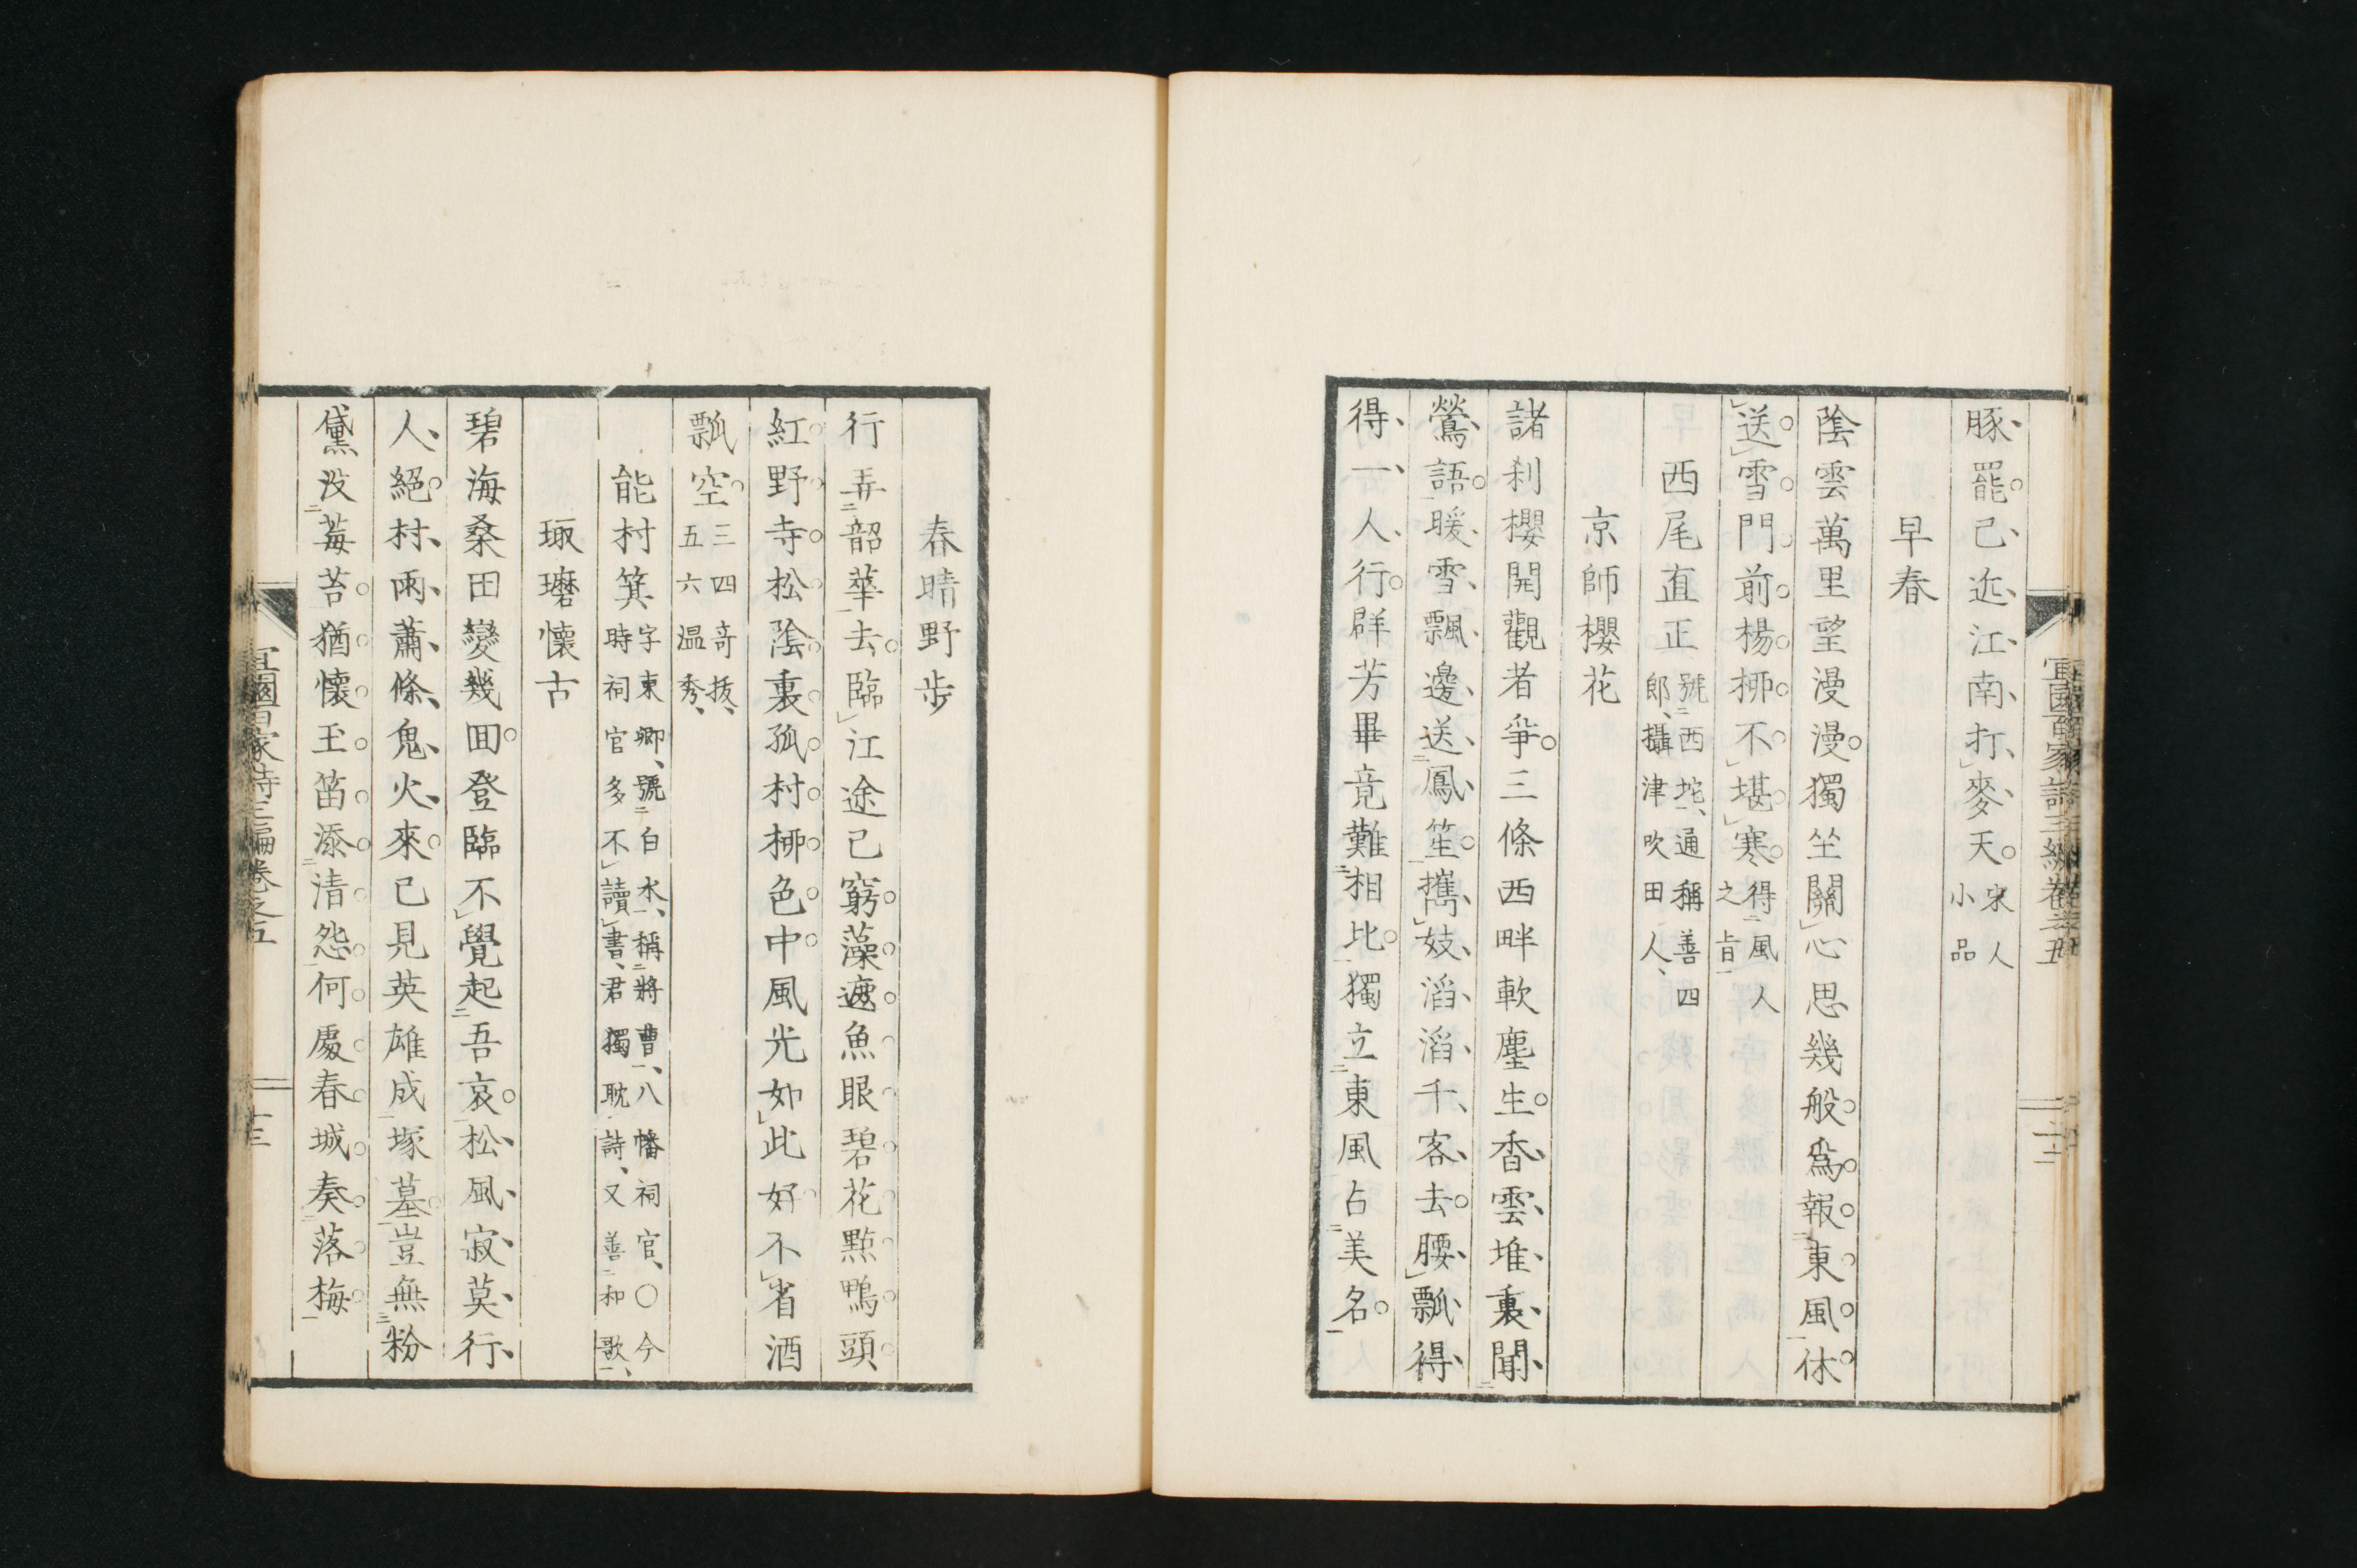 豚罷已近江南打麥天宋人小品
早春
陰雲萬里望漫漫獨坐關心思幾般爲報東風休
送雪門前楊桺不堪寒得風人之旨
西尾直正號西坨通稱善四郎攝津吹田人
京師櫻花
諸刹櫻開觀者爭三條西畔軟塵生香雲堆裏聞
鶯語暖雪飄邊送鳳笙攜妓滔滔千客去腰瓢得
得一人行群芳畢竟難相比獨立東風占美名
春晴野步
行弄韶華去臨江途已窮藻遮魚眼碧花點鴨頭
紅野寺松陰裏孤村桺色中風光如此好不省酒
瓢空三四奇拔五六溫秀
能村箕字東卿號白水稱將曹八幡祠官〇今時祠官多不讀書君獨耽詩又善和歌
琢磨懷古
碧海桑田變幾回登臨不覺起吾哀松風寂莫行
人絕村雨蕭條鬼火來已見英雄成塚墓豈無粉
黛没莓苔猶懷玉笛添清怨何處春城奏落梅
宜園百家詩三編卷之五